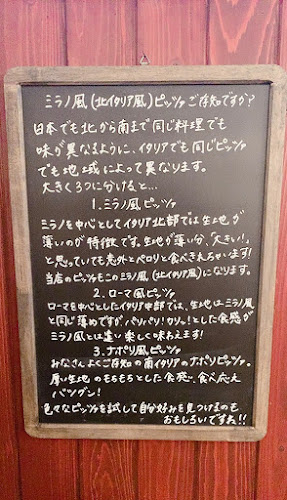 ミラノ風(北イタリア風)ピッツァご存知ですか?
日本でも北から南まで同じ料理でも
味が異なるように、イタリアでも同じピッツァ
でも地域によって異なります。
大きく3つに分けると…
1.ミラノ風ピッツァ
ミラノを中心としてイタリア北部では生地が
薄いのが特徴です。生地が薄い分、「大きい!」
と思っていても意外とペロリと食べきれちゃいます!
当店のピッツァもこのミラノ風(北イタリア風)になります。
2.ローマ風ピッツァ
ローマを中心としたイタリア中部では、生地はミラノ風
と同じ薄めですが、パリパリ!カリッ!とした食感が
ミラノ風とは違い楽しく味わえます!
3.ナポリ風ピッツァ
みなさんよくご存知の南イタリアのナポリピッツァ。
厚い生地のもちもちとした食感、食べ応え
バツグン!
色々なピッツァを試して自分好みを見つけるのも
おもしろいですね!!